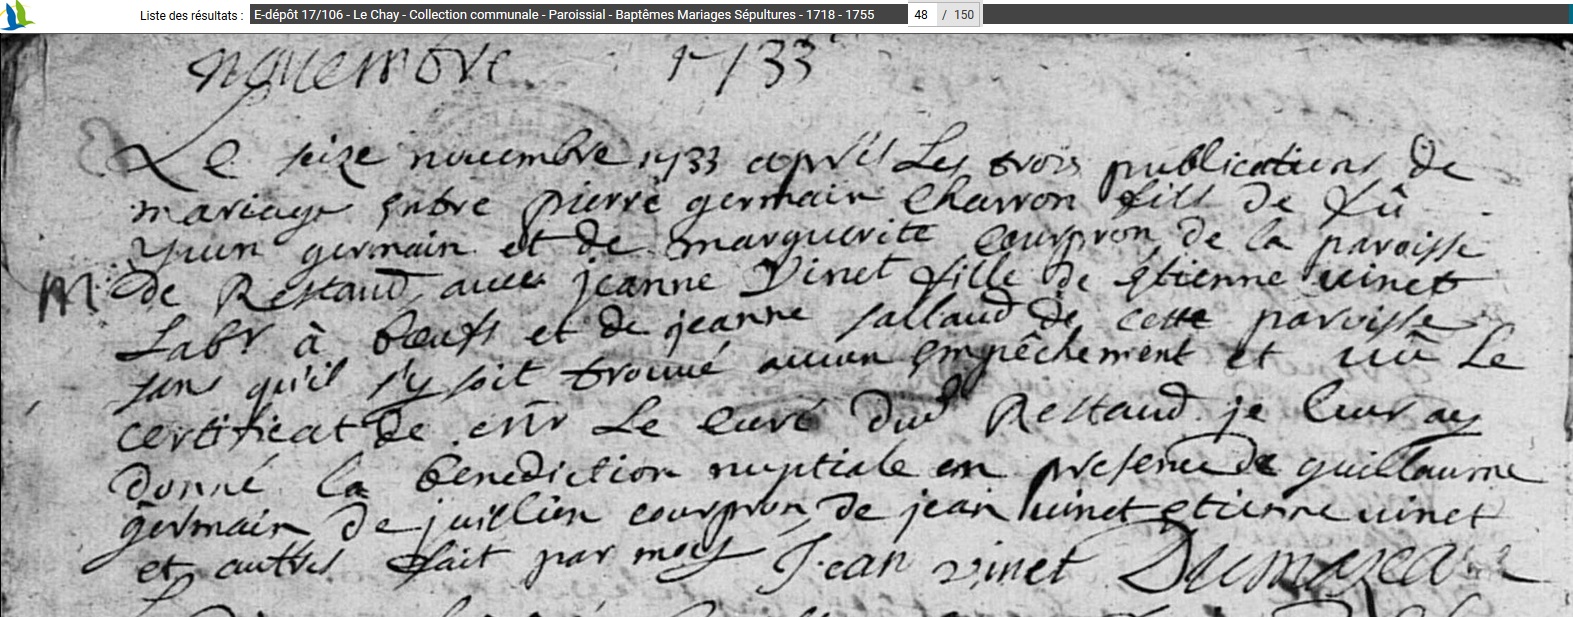 Liste des résultats : E-dépôt 17/106 - Le Chay - Collection communale - Paroissial - Baptêmes Mariages Sépultures - 1718 - 1755 48 / 150
novembre 1733
Le seize nouembre 1733 après Les trois publications de
mariage entre pierre germain Charron fils de fû
germain et de marguerite courpron de la paroisse
M de Restaud, auec jeanne Vinet fille de Etienne uinet
Labr à beufs et de jeanne sallaud de cette paroisse
sans qu'il s'y soit trouué aucun empêchement et uû Le
certificat de Le Curé dud Restaud je leur ay
donné la benediction nuptiale en presence de guillaume
germain de juillien courpron, de jean uinet etienne uinet
et auttres fait par moy Jean vinet